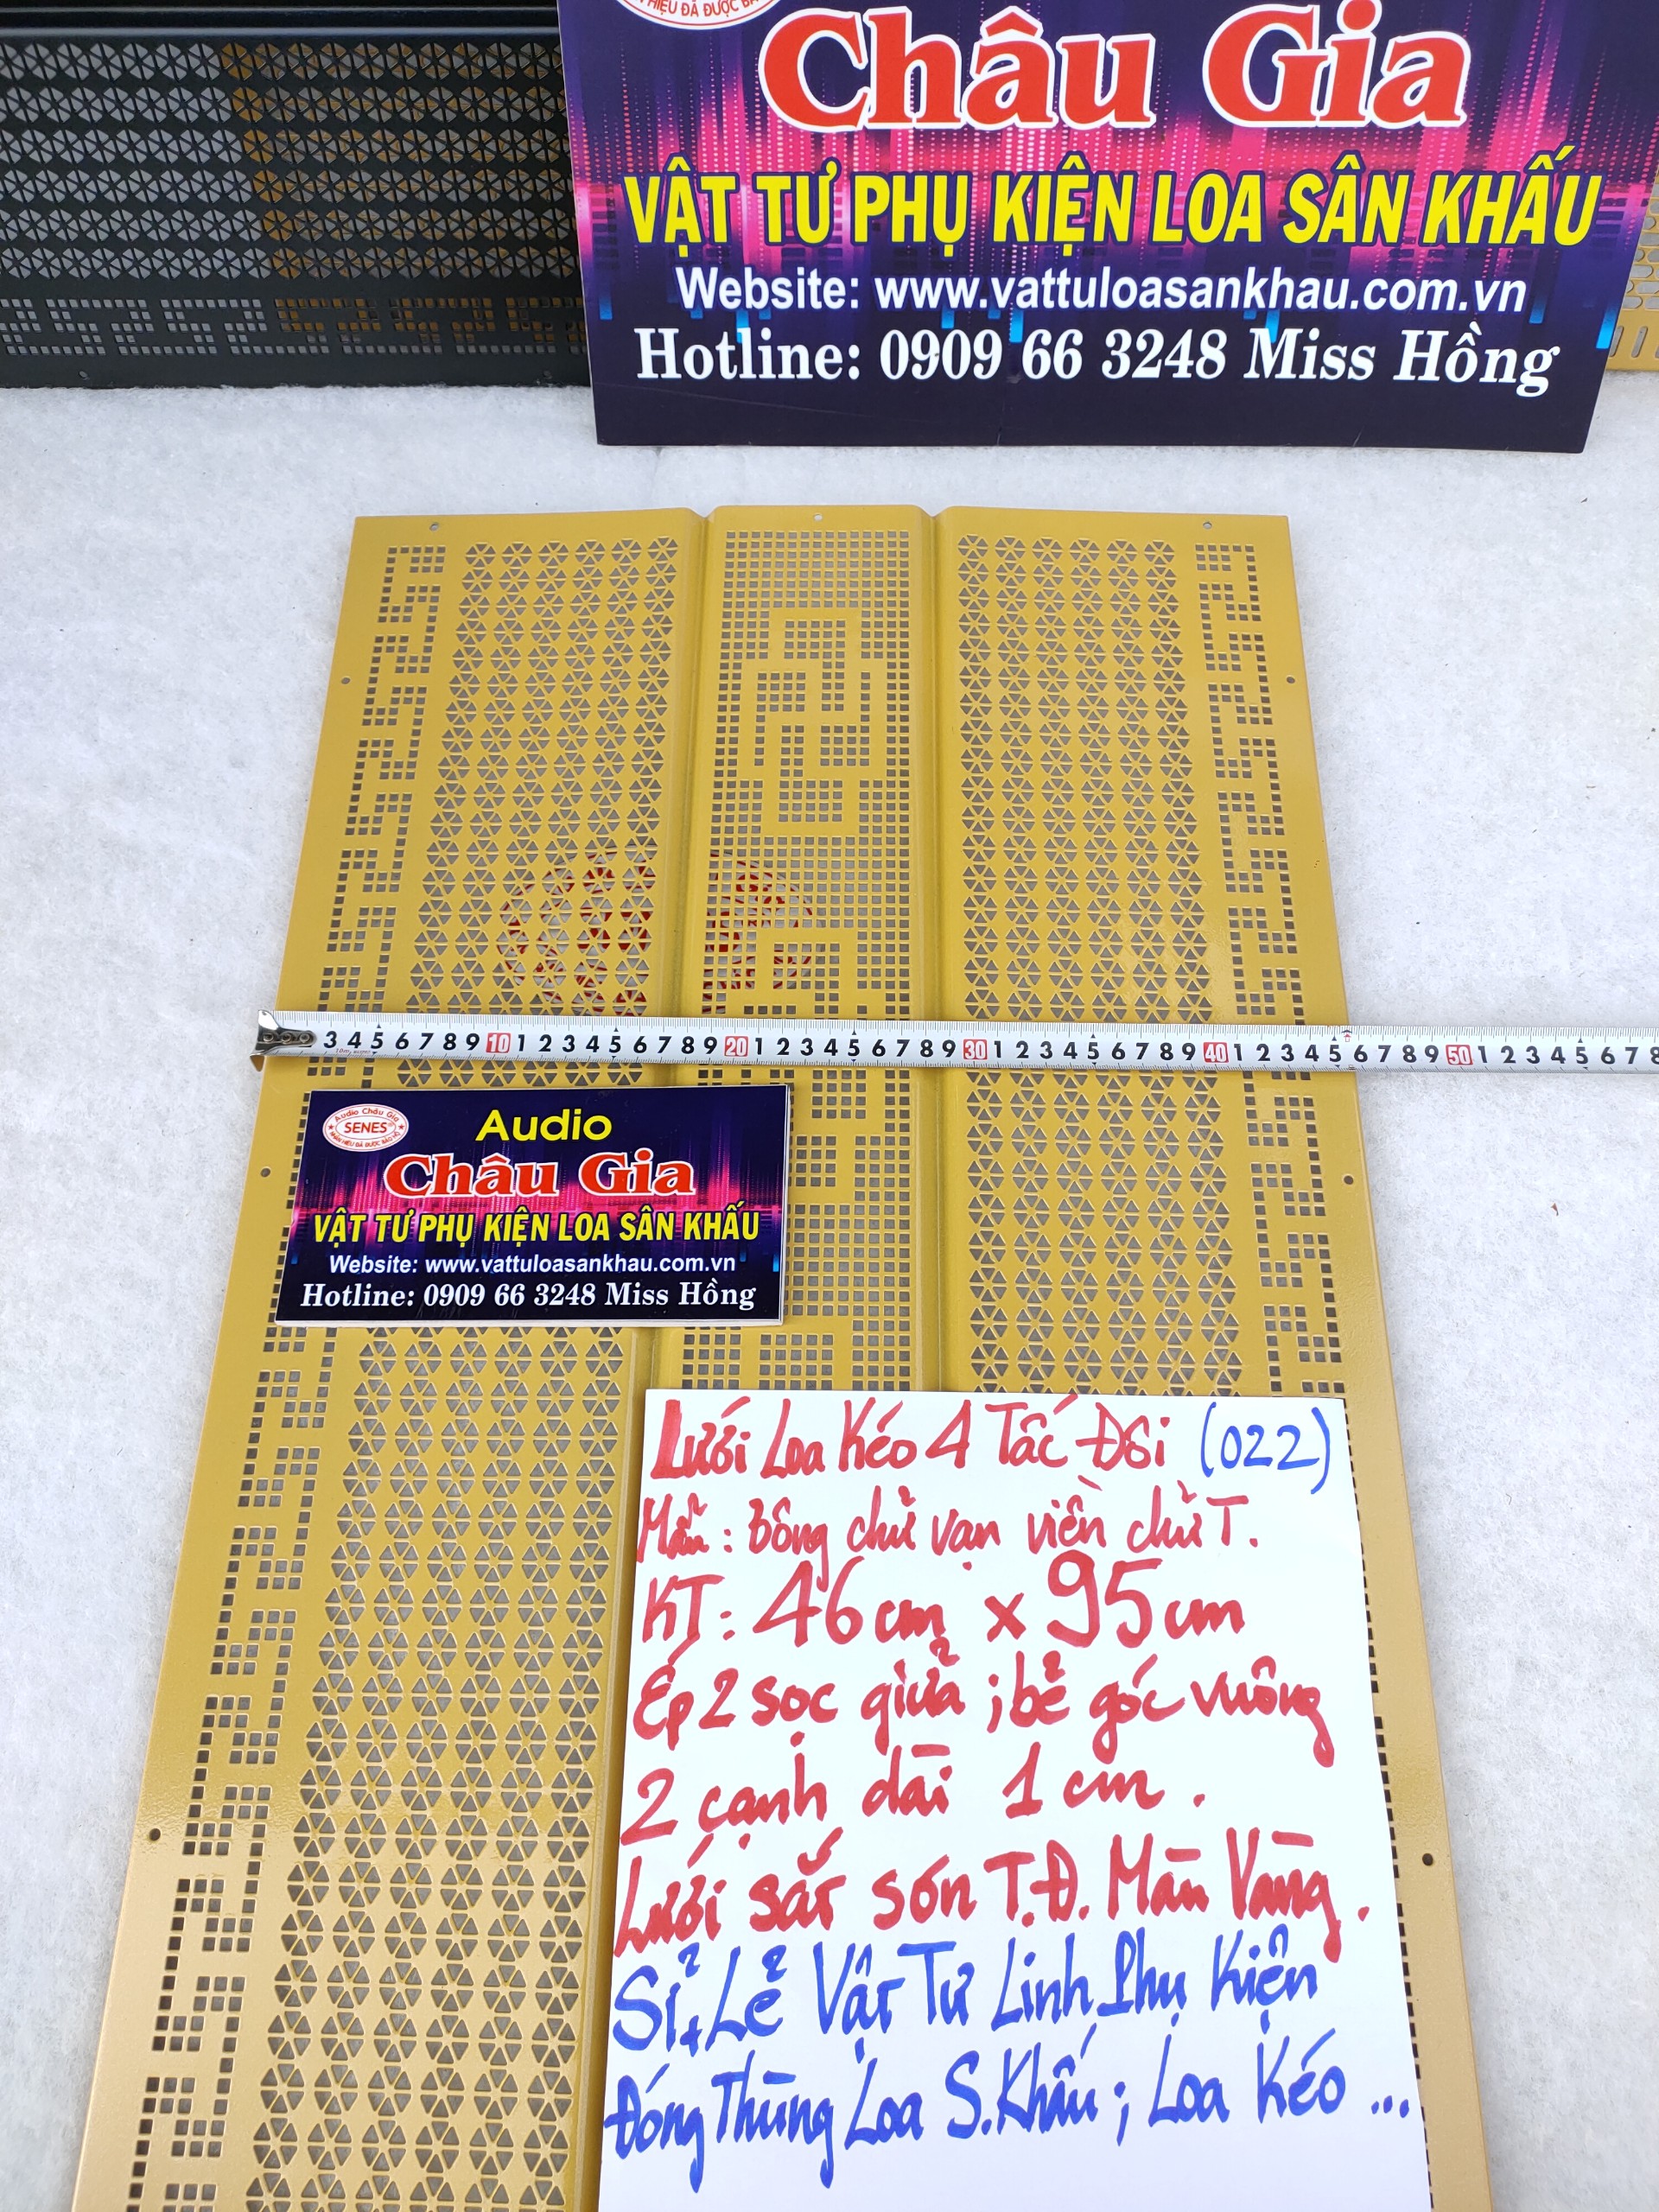 HIỆU ĐÃ ĐƯỢC BẢO
Châu Gia
VẬT TƯ PHỤ KIỆN LOA SÂN KHẤU
Website: www.vattuloasankhau.com.vn
Hotline: 0909 66 3248 Miss Hồng
3 4 5 6 7 8 9 10 1 2 3 4 5 6 7 8 9 20 1 2 3 4 5 6 7 8 9 30 1 2 3 4 5 6 7 8 9 40 1 2 3 4 5 6 7 8 9 50 1 2 3 4 5 6 7 8
Audio Châu Gia
SENES
NHÃN HIỆU ĐÃ ĐƯỢC BẢO HỘ
Audio
Châu Gia
VẬT TƯ PHỤ KIỆN LOA SÂN KHẤU
Website: www.vattuloasankhau.com.vn
Hotline: 0909 66 3248 Miss Hồng
Lưới Loa Kéo 4 Tấc Đôi (022)
Mẫu: Bông chử vạn viền chử T.
KT: 46cm x 95cm
Ép 2 sọc giửa ; bẻ góc vuông
2 cạnh dài 1 cm.
Lưới sắt sơn T.Đ. Màu Vàng.
Sỉ + Lẻ Vật Tư Linh Phụ Kiện
Đóng Thùng Loa S.Khấu ; Loa Kéo ...